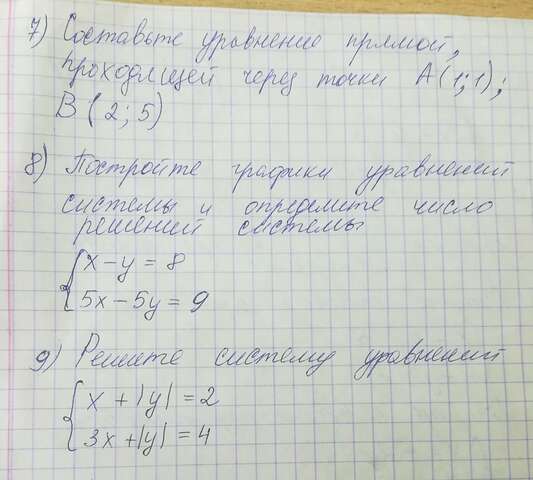 7) Составьте уравнение прямой,
проходящей через точки A(1;1);
B(2;5)
8) Постройте графики уравнений
системы и определите число
решений системы
x-y=8
5x-5y=9
9) Решите систему уравнений
x+|y|=2
3x+|y|=4